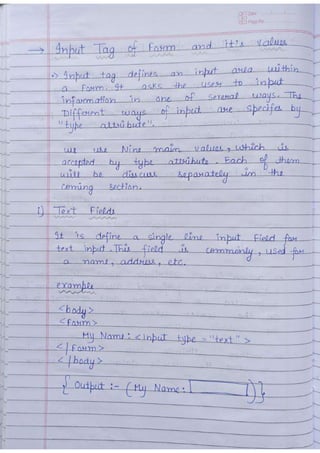 → Input Tag of Form and it's values
:- Input tag defines an input area within
a Form. It asks the user to input
information in one of several ways. The
Different ways of input are specifes by
"type attribute".
we use Nine main values, which is
accepted by type attribute. Each of them
will be discuss separately in the
coming section.
1) Text Fields
It is define a single line Input Field for
text input. This field is commonly, used for
a name, address, etc.
example
<body>
<Form>
My Name: <input type = "text">
</Form>
</body>
{ Output :- (My Name: )}